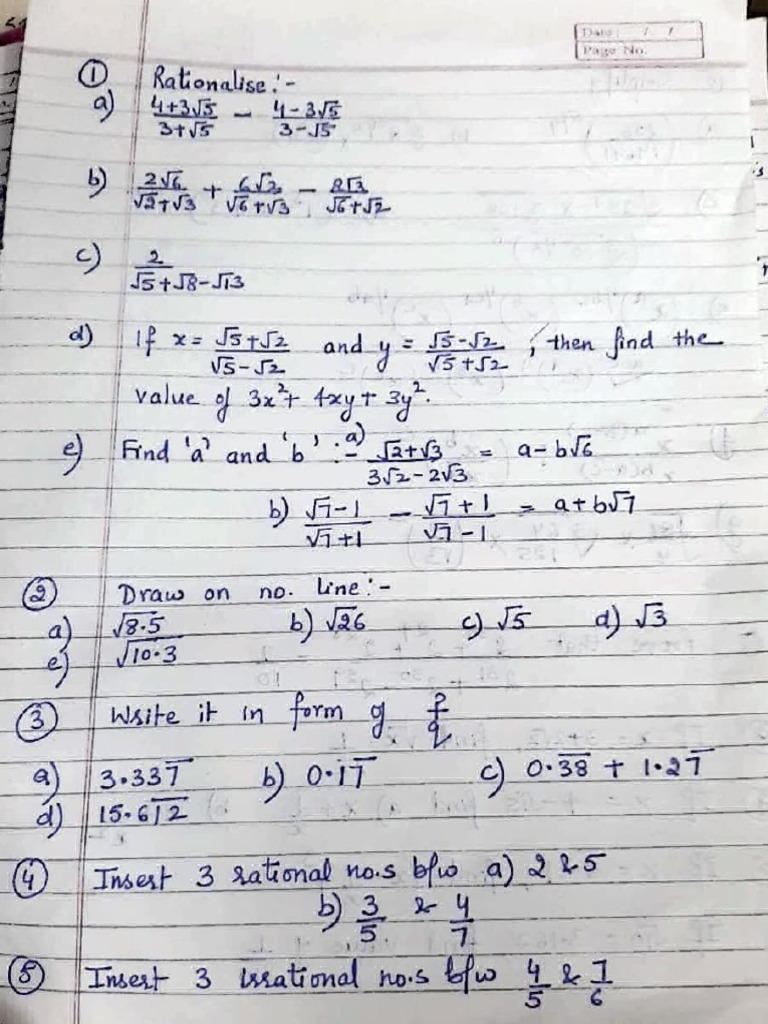 Date: / /
Page No.
① Rationalise:-
a) (4+3√5)/(3+√5) − (4-3√5)/(3-√5)
b) 2√6/(√2+√3) + 6√2/(√6+√3) − 8√3/(√6+√2)
c) 2/(√5+√8-√13)
d) If x = (√5+√2)/(√5-√2) and y = (√5-√2)/(√5+√2), then find the
value of 3x²+ 4xy + 3y².
e) Find 'a' and 'b' :- a) (√2+√3)/(3√2-2√3) = a-b√6
b) (√7-1)/(√7+1) − (√7+1)/(√7-1) = a+b√7
② Draw on no. line:-
a) √8.5 b) √26 c) √5 d) √3
e) √10.3
③ Write it in form of p/q
a) 3.337̅ b) 0.17̅ c) 0.3̅8̅ + 1.27̅
d) 15.6̅1̅2̅
④ Insert 3 rational no.s b/w a) 2 & 5
b) 3/5 & 4/7
⑤ Insert 3 irrational no.s b/w 4/5 & 7/6